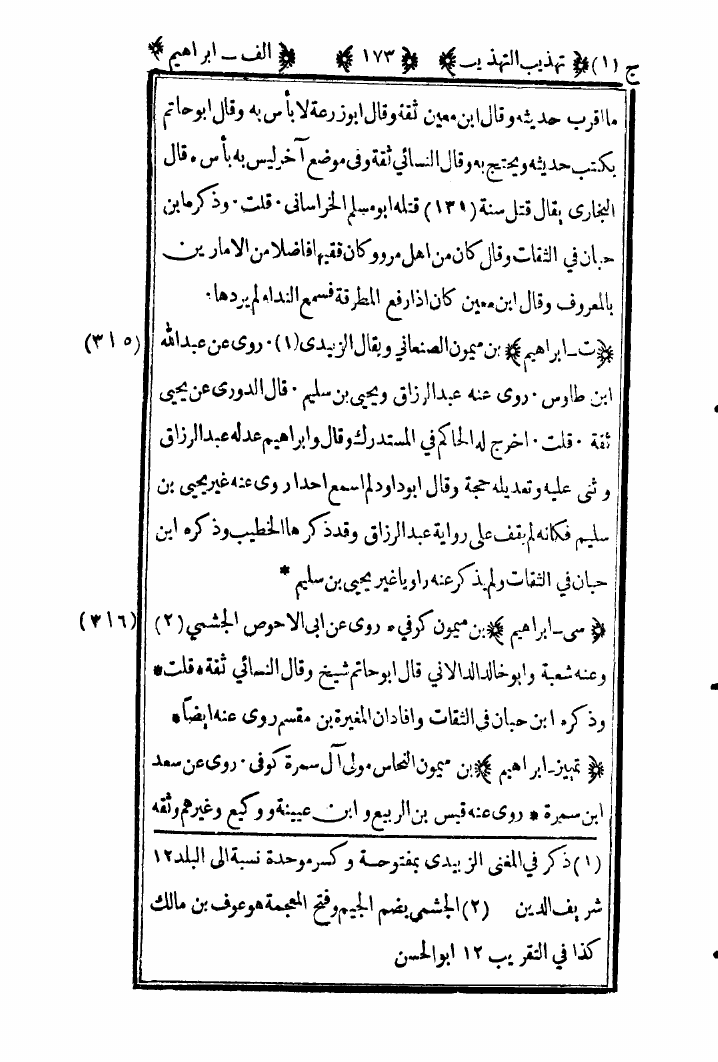 ج (١) ﴿ تهذيب التهذيب ﴾ ﴿ ١٧٣ ﴾ ﴿ الف ـ ابراهيم ﴾
ما اقرب حديثه وقال ابن معين ثقة وقال ابوزرعة لا بأس به وقال ابوحاتم
يكتب حديثه ويحتج به وقال النسائي ثقة وفى موضع آخر ليس به بأس ٠ قال
البخارى يقال قتل سنة (١٣١) قتله ابو مسلم الخراسانى ٠ قلت ٠ وذكره ابن
حبان في الثقات وقال كان من اهل مرو وكان فقيها فاضلا من الامارين
بالمعروف وقال ابن معين كان اذا رفع المطرقة فسمع النداء لم يردها ٠
﴿ ت ـ ابراهيم ﴾ بن ميمون الصنعاني ويقال الزبيدى (١) ٠ روى عن عبدالله (٣١٥)
ابن طاوس ٠ روى عنه عبدالرزاق ويحيى بن سليم ٠ قال الدورى عن يحيى
ثقة ٠ قلت ٠ اخرج له الحاكم في المستدرك وقال وابراهيم عدله عبدالرزاق
وثنى عليه وتعديله حجة وقال ابوداود لم اسمع احدا روى عنه غير يحيى بن
سليم فكانه لم يقف على رواية عبدالرزاق وقد ذكرها الخطيب وذكره ابن
حبان في الثقات ولم يذكر عنه راويا غير يحيى بن سليم *
﴿ سى ـ ابراهيم ﴾ بن ميمون كوفي ٠ روى عن ابى الاحوص الجشمي (٢) (٣١٦)
وعنه شعبة وابوخالد الدالاني قال ابوحاتم شيخ وقال النسائي ثقة * قلت *
وذكره ابن حبان فى الثقات وافاد ان المغيرة بن مقسم روى عنه ايضاً *
﴿ تمييز ـ ابراهيم ﴾ بن ميمون النحاس ٠ ولى آل سمرة كوفى ٠ روى عن سعد
ابن سمرة * روى عنه قيس بن الربيع وابن عيينة ووكيع وغيرهم وثقه
(١) ذكر في المغنى الزبيدى بمفتوحة وكسر موحدة نسبة الى البلد ١٢
شريف الدين (٢) الجشمي بضم الجيم وفتح المعجمة هو عوف بن مالك
كذا في التقريب ١٢ ابو الحسن